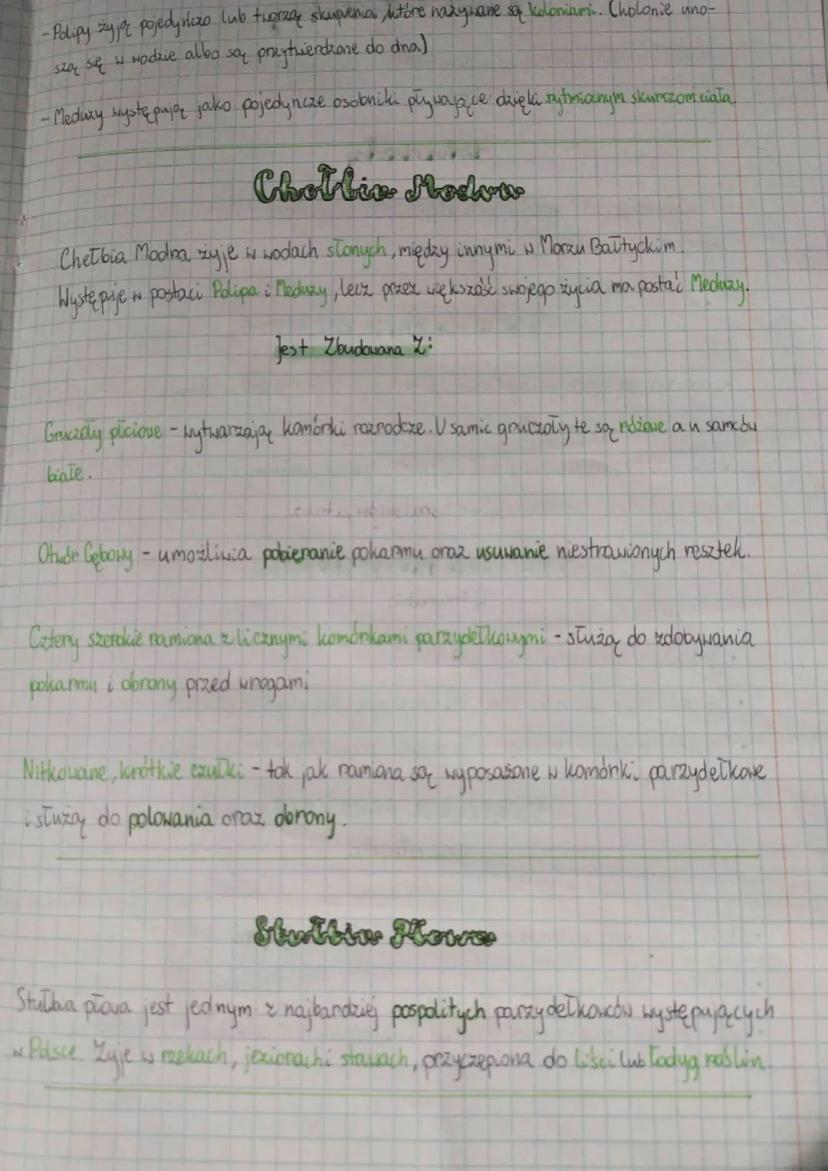 -Polipy żyją pojedyńczo lub tworzą skupienia, które nazywane są koloniami. (holonie uno-
szą się w wodzie albo są przytwierdzone do dna)
-Meduzy występują jako pojedyncze osobniki pływające dzięki rytmicznym skurczom ciała
Chełbia Modra
Chełbia Modra żyje w wodach słonych, między innymi w Morzu Bałtyckim.
Występuje w postaci Polipa i Meduzy, lecz przez większość swojego życia ma postać Meduzy.
Jest Zbudowana Z:
Gruczoły płciowe - wytwarzają komórki rozrodcze. U samic gruczoły te są różowe a u samców
białe.
Otwór Gębowy - umożliwia pobieranie pokarmu oraz usuwanie niestrawionych resztek.
Cztery szerokie ramiona z licznymi komórkami parzydełkowymi - służą do zdobywania
pokarmu i obrony przed wrogami
Nitkowane, krótkie czułki - tak jak ramiona są wyposażone w komórki parzydełkowe
i służą do polowania oraz obrony.
Stułbia Płowa
Stułbia płowa jest jednym z najbardziej pospolitych parzydełkowców występujących
w Polsce. Żyje w rzekach, jeziorach i stawach, przyczepiona do liści lub łodyg roślin.